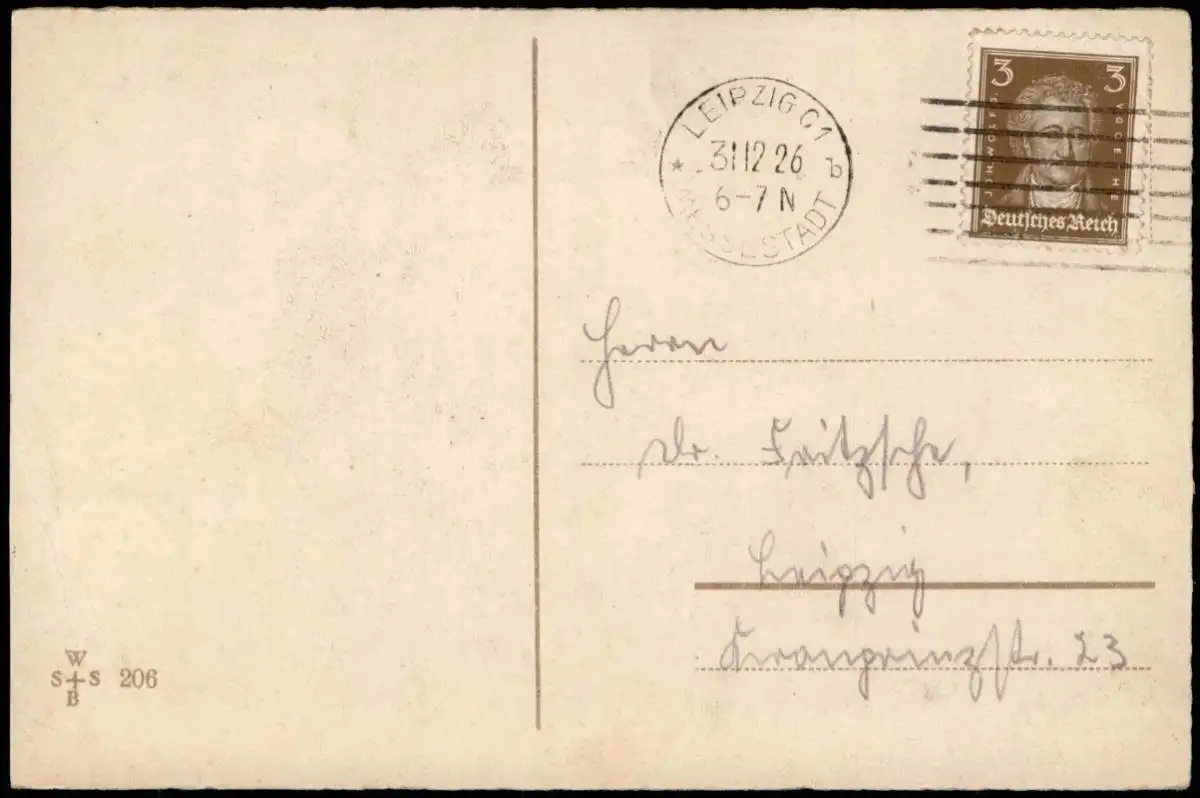 LEIPZIG C1
31 12 26
6-7 N
b
MESSESTADT
3 3
JOH. WOLFG. V. GOETHE
Deutsches Reich
Herrn
Dr. Fritzsche,
Leipzig
Kronprinzstr. 23
W
S S 206
B